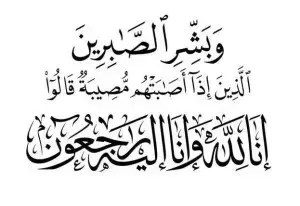 وَبَشِّرِ الصَّابِرِينَ
الَّذِينَ إِذَا أَصَابَتْهُم مُّصِيبَةٌ قَالُوا
إِنَّا لِلَّهِ وَإِنَّا إِلَيْهِ رَاجِعُونَ